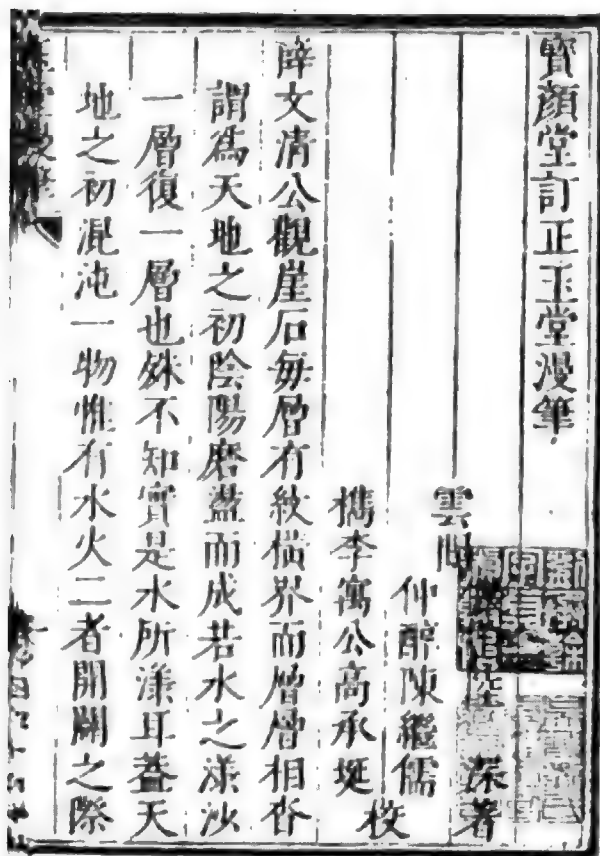 寶顏堂訂正玉堂漫筆
雲間 陸 深著
仲醇陳繼儒
檇李寓公高承埏 校
薛文清公觀崖石每層有紋橫界而層層相沓
謂爲天地之初陰陽磨盪而成若水之漾沙
一層復一層也殊不知實是水所漾耳葢天
地之初混沌一物惟有水火二者開闢之際